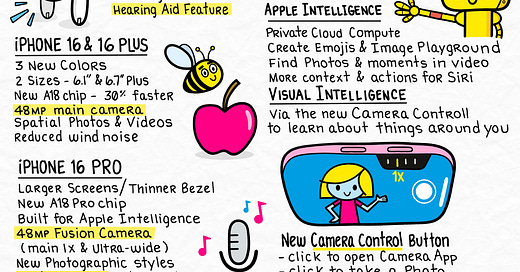 Hearing Aid Feature
iPHONE 16 & 16 PLUS
3 New Colors
2 Sizes - 6.1" & 6.7" Plus
New A18 chip - 30% faster
48MP main camera
Spatial Photos & Videos
Reduced wind noise
iPHONE 16 PRO
Larger Screens/Thinner Bezel
New A18 Pro chip
Built for Apple Intelligence
48MP Fusion Camera
(main 1x & Ultra-wide)
New Photographic styles
APPLE INTELLIGENCE
Private Cloud Compute
Create Emojis & Image Playground
Find Photos & moments in video
More context & actions for Siri
VISUAL INTELLIGENCE
Via the new Camera Controll
to learn about things around you
1x
New Camera Control Button
- click to open Camera App
- click to take a Photo